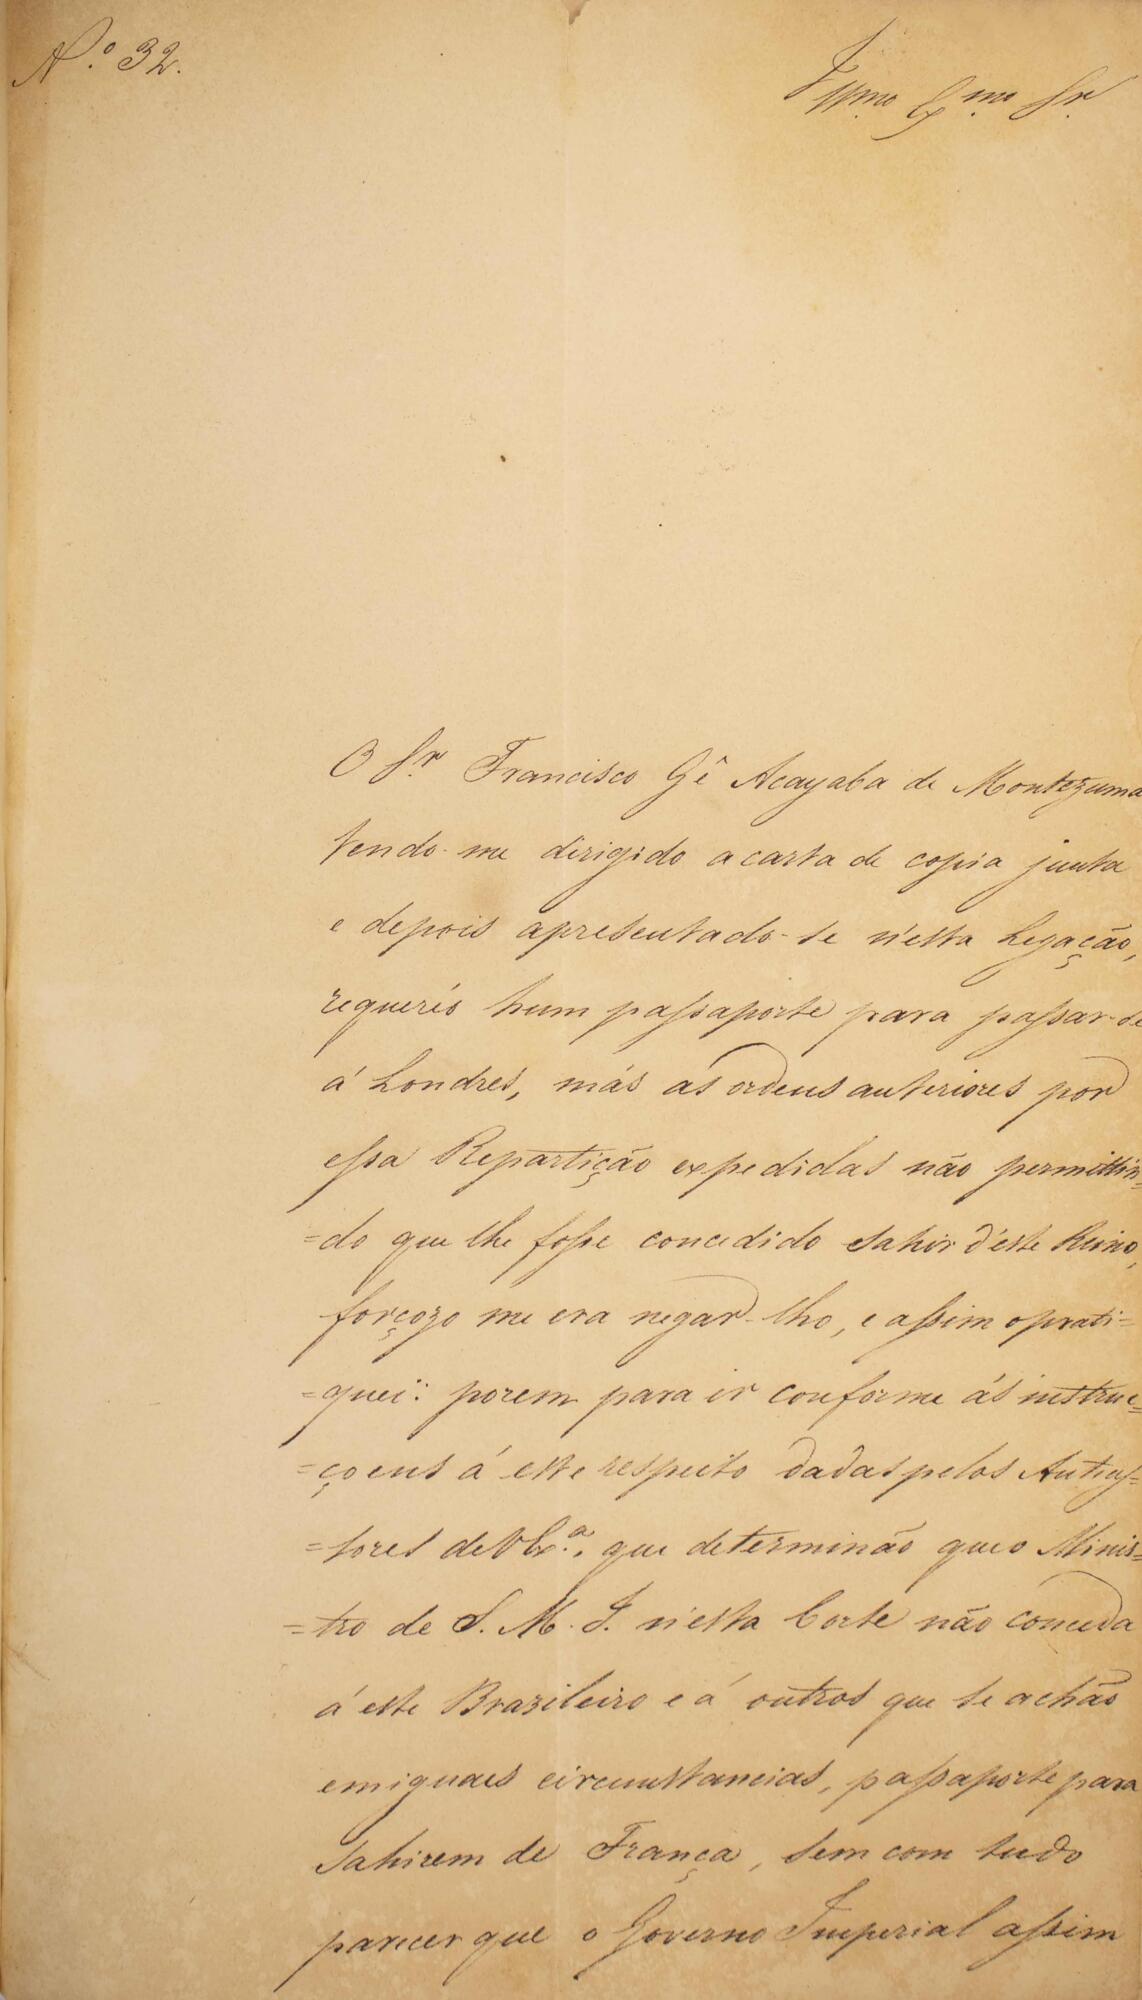 N.º 32.
Illmo. Exmo. Sr.
O Sr. Francisco Gê Acayaba de Montezuma
tendo-me dirigido a carta de copia junta
e depois apresentado-se n'esta Legação,
requerêo hum passaporte para passar-se
á Londres, más as ordens anteriores por
essa Repartição expedidas não permittin=
=do que lhe fosse concedido sahir d'este Reino,
forçozo me era negar-lho, e assim o prati=
=quei: porem para ir conforme ás instruc=
=çoens á este respeito dadas pelos Anteces=
=sores de V Ex.ª, que determinão que o Minis=
=tro de S. M. I. n'esta Corte não conceda
á este Brazileiro e á outros que se achão
em iguaes circunstancias, passaporte para
sahirem de França, sem com tudo
parecer que o Governo Imperial assim